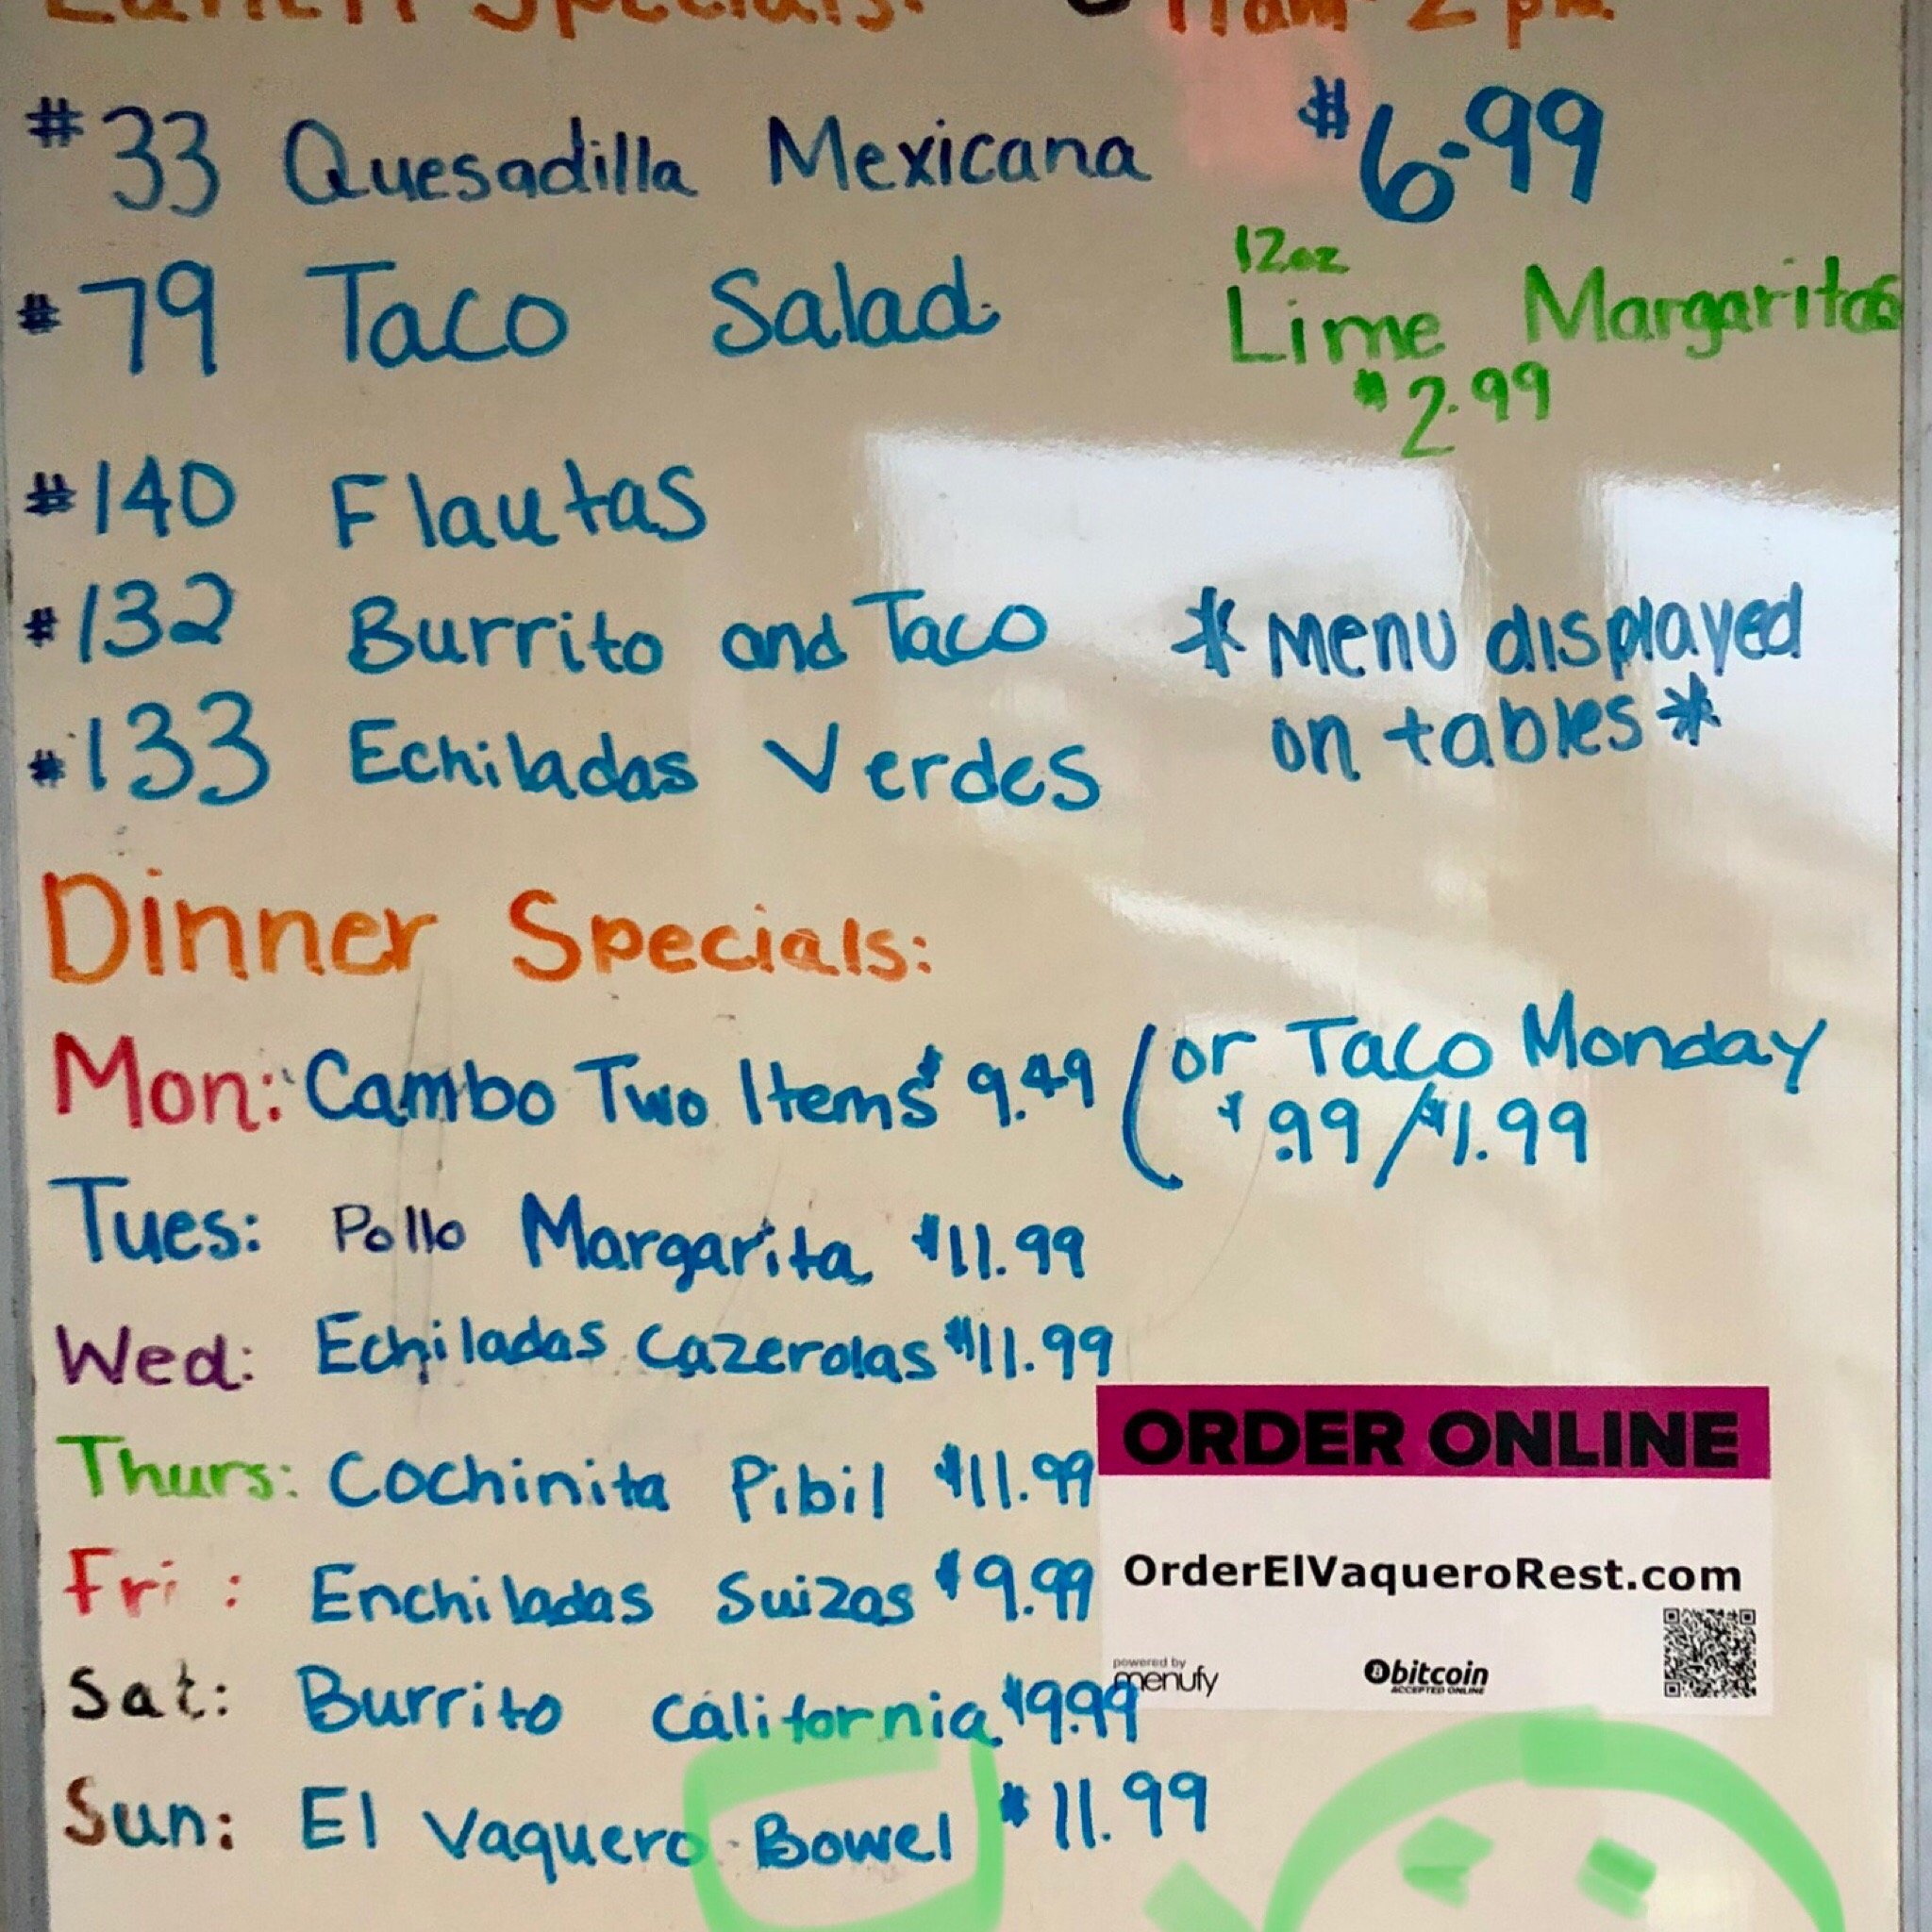 Lunch Specials: 11am-2pm
#33 Quesadilla Mexicana $6.99
#79 Taco Salad
12oz
Lime Margaritas
$2.99
#140 Flautas
#132 Burrito and Taco
#133 Echiladas Verdes
*Menu displayed
on tables*
Dinner Specials:
Mon: Cambo Two Items $9.49 (or Taco Monday
$.99/$1.99
Tues: Pollo Margarita $11.99
Wed: Echiladas Cazerolas $11.99
Thurs: Cochinita Pibil $11.99
Fri: Enchiladas Suizas $9.99
Sat: Burrito California $9.99
Sun: El Vaquero Bowel $11.99
ORDER ONLINE
OrderElVaqueroRest.com
powered by
menufy
bitcoin
ACCEPTED ONLINE